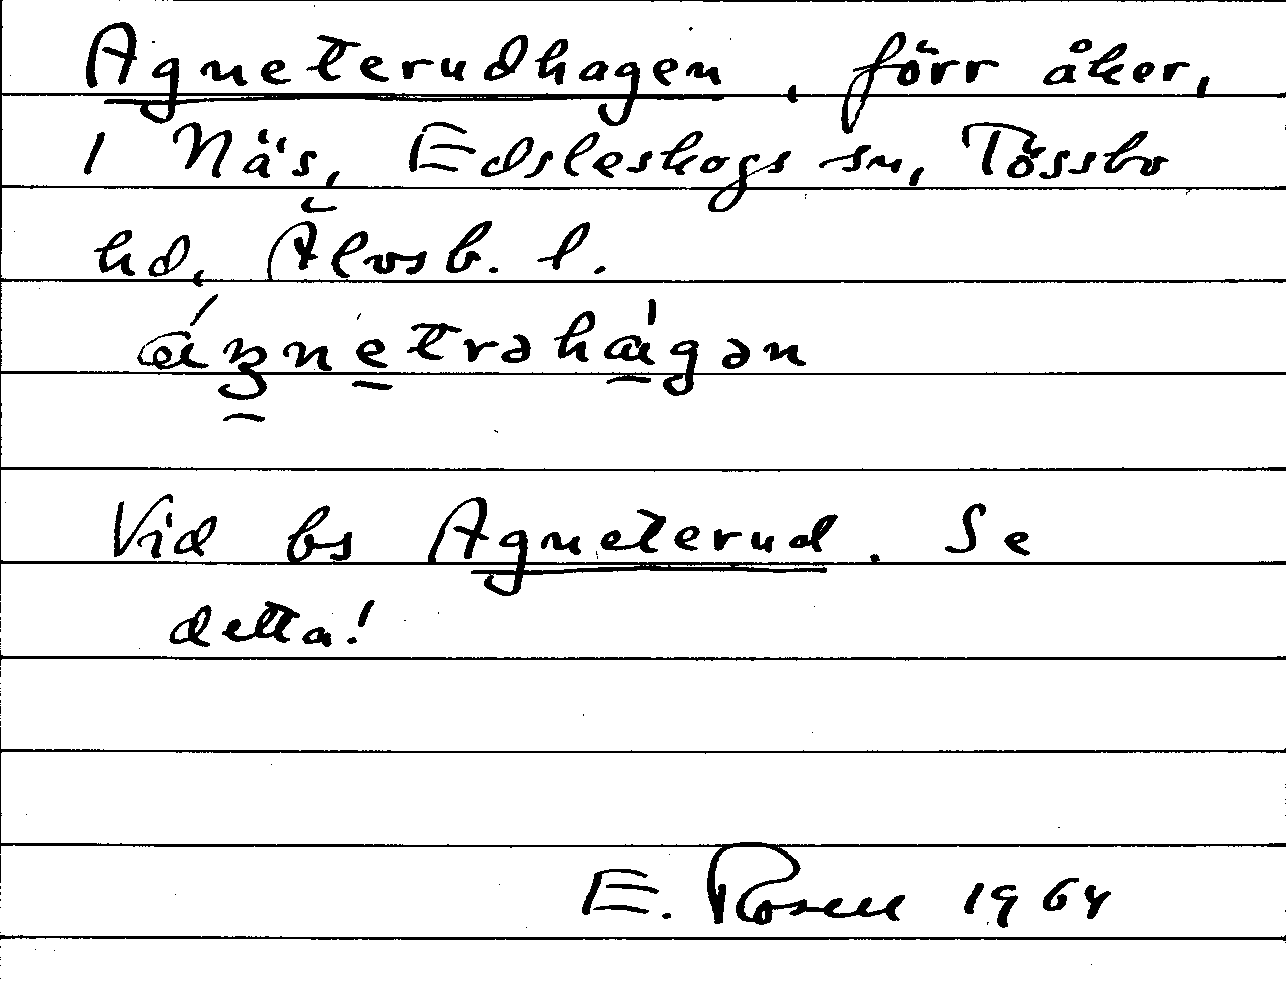 Agneterudhagen, förr åker,
i Näs, Edsleskogs sn, Tössbo
hd, Älvsb. l.
áŋnetrəhàgən
Vid bs Agneterud. Se
detta!
E. Rosell 1964